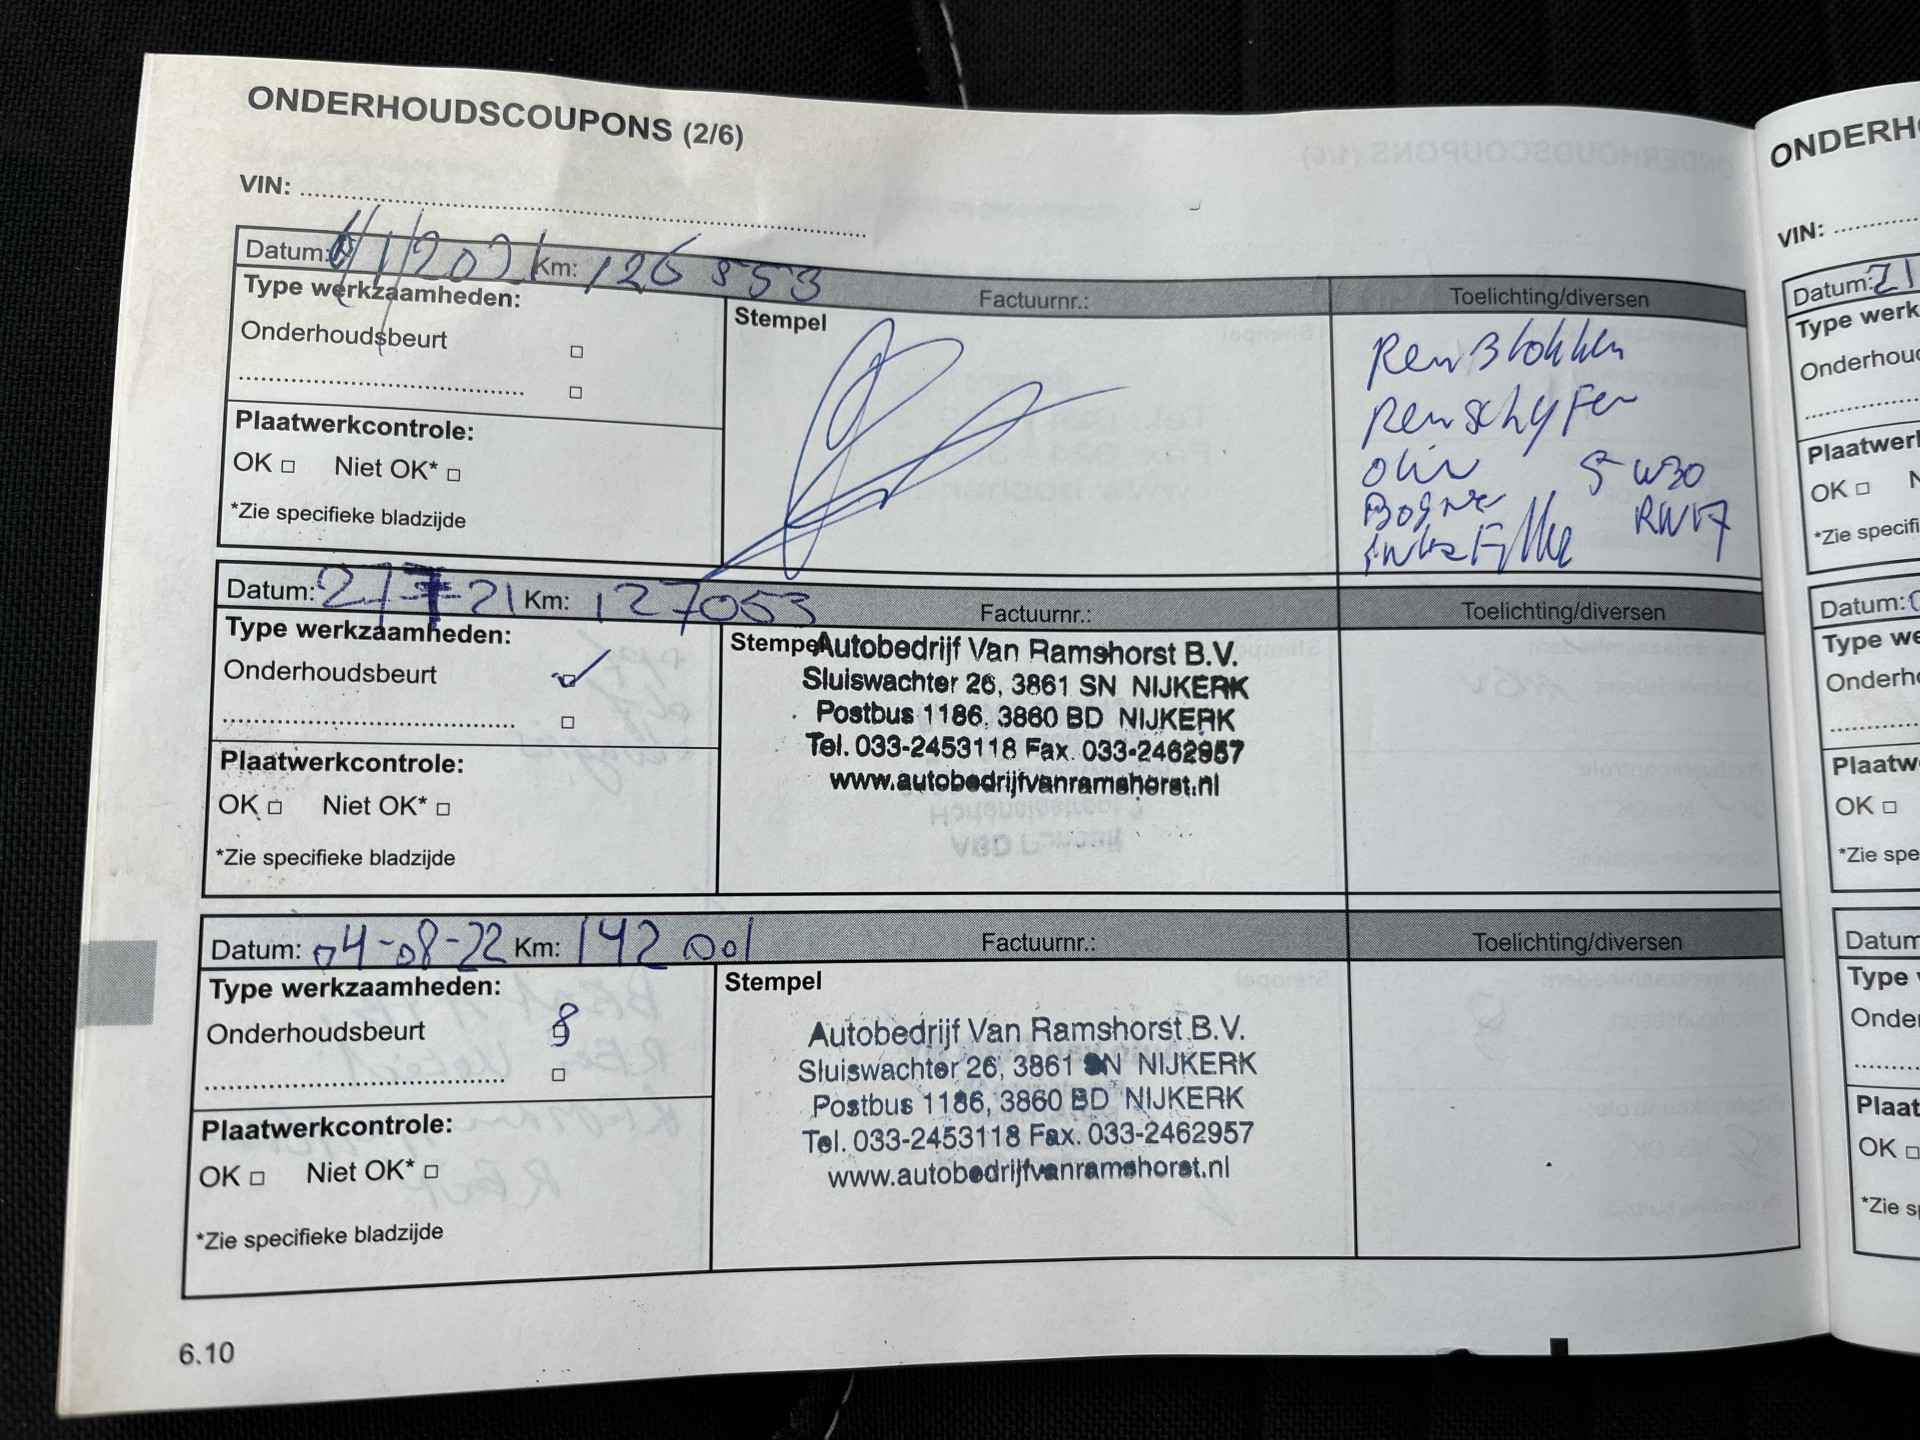 ONDERHOUDSCOUPONS (2/6)
VIN:
Datum: Km: 126 853 Factuurnr.: Toelichting/diversen
Type werkzaamheden:
Onderhoudsbeurt
Plaatwerkcontrole:
OK Niet OK*
*Zie specifieke bladzijde
Stempel
RemBlokken
Remschyfen
Olie 5 W30
RN17
Datum: 21 7-21 Km: 127053 Factuurnr.: Toelichting/diversen
Type werkzaamheden:
Onderhoudsbeurt
Plaatwerkcontrole:
OK Niet OK*
*Zie specifieke bladzijde
Stempel
Autobedrijf Van Ramshorst B.V.
Sluiswachter 26, 3861 SN NIJKERK
Postbus 1186, 3860 BD NIJKERK
Tel. 033-2453118 Fax. 033-2462957
www.autobedrijfvanramshorst.nl
Datum: 04-08-22 Km: 142 001 Factuurnr.: Toelichting/diversen
Type werkzaamheden:
Onderhoudsbeurt
Plaatwerkcontrole:
OK Niet OK*
*Zie specifieke bladzijde
Stempel
Autobedrijf Van Ramshorst B.V.
Sluiswachter 26, 3861 SN NIJKERK
Postbus 1186, 3860 BD NIJKERK
Tel. 033-2453118 Fax. 033-2462957
www.autobedrijfvanramshorst.nl
6.10
ONDERH
VIN:
Datum: 21
Type werk
Onderhoud
Plaatwerk
OK N
*Zie specifi
Datum: 0
Type we
Onderh
Plaatw
OK
*Zie spe
Datum
Type
Onder
Plaat
OK
*Zie s